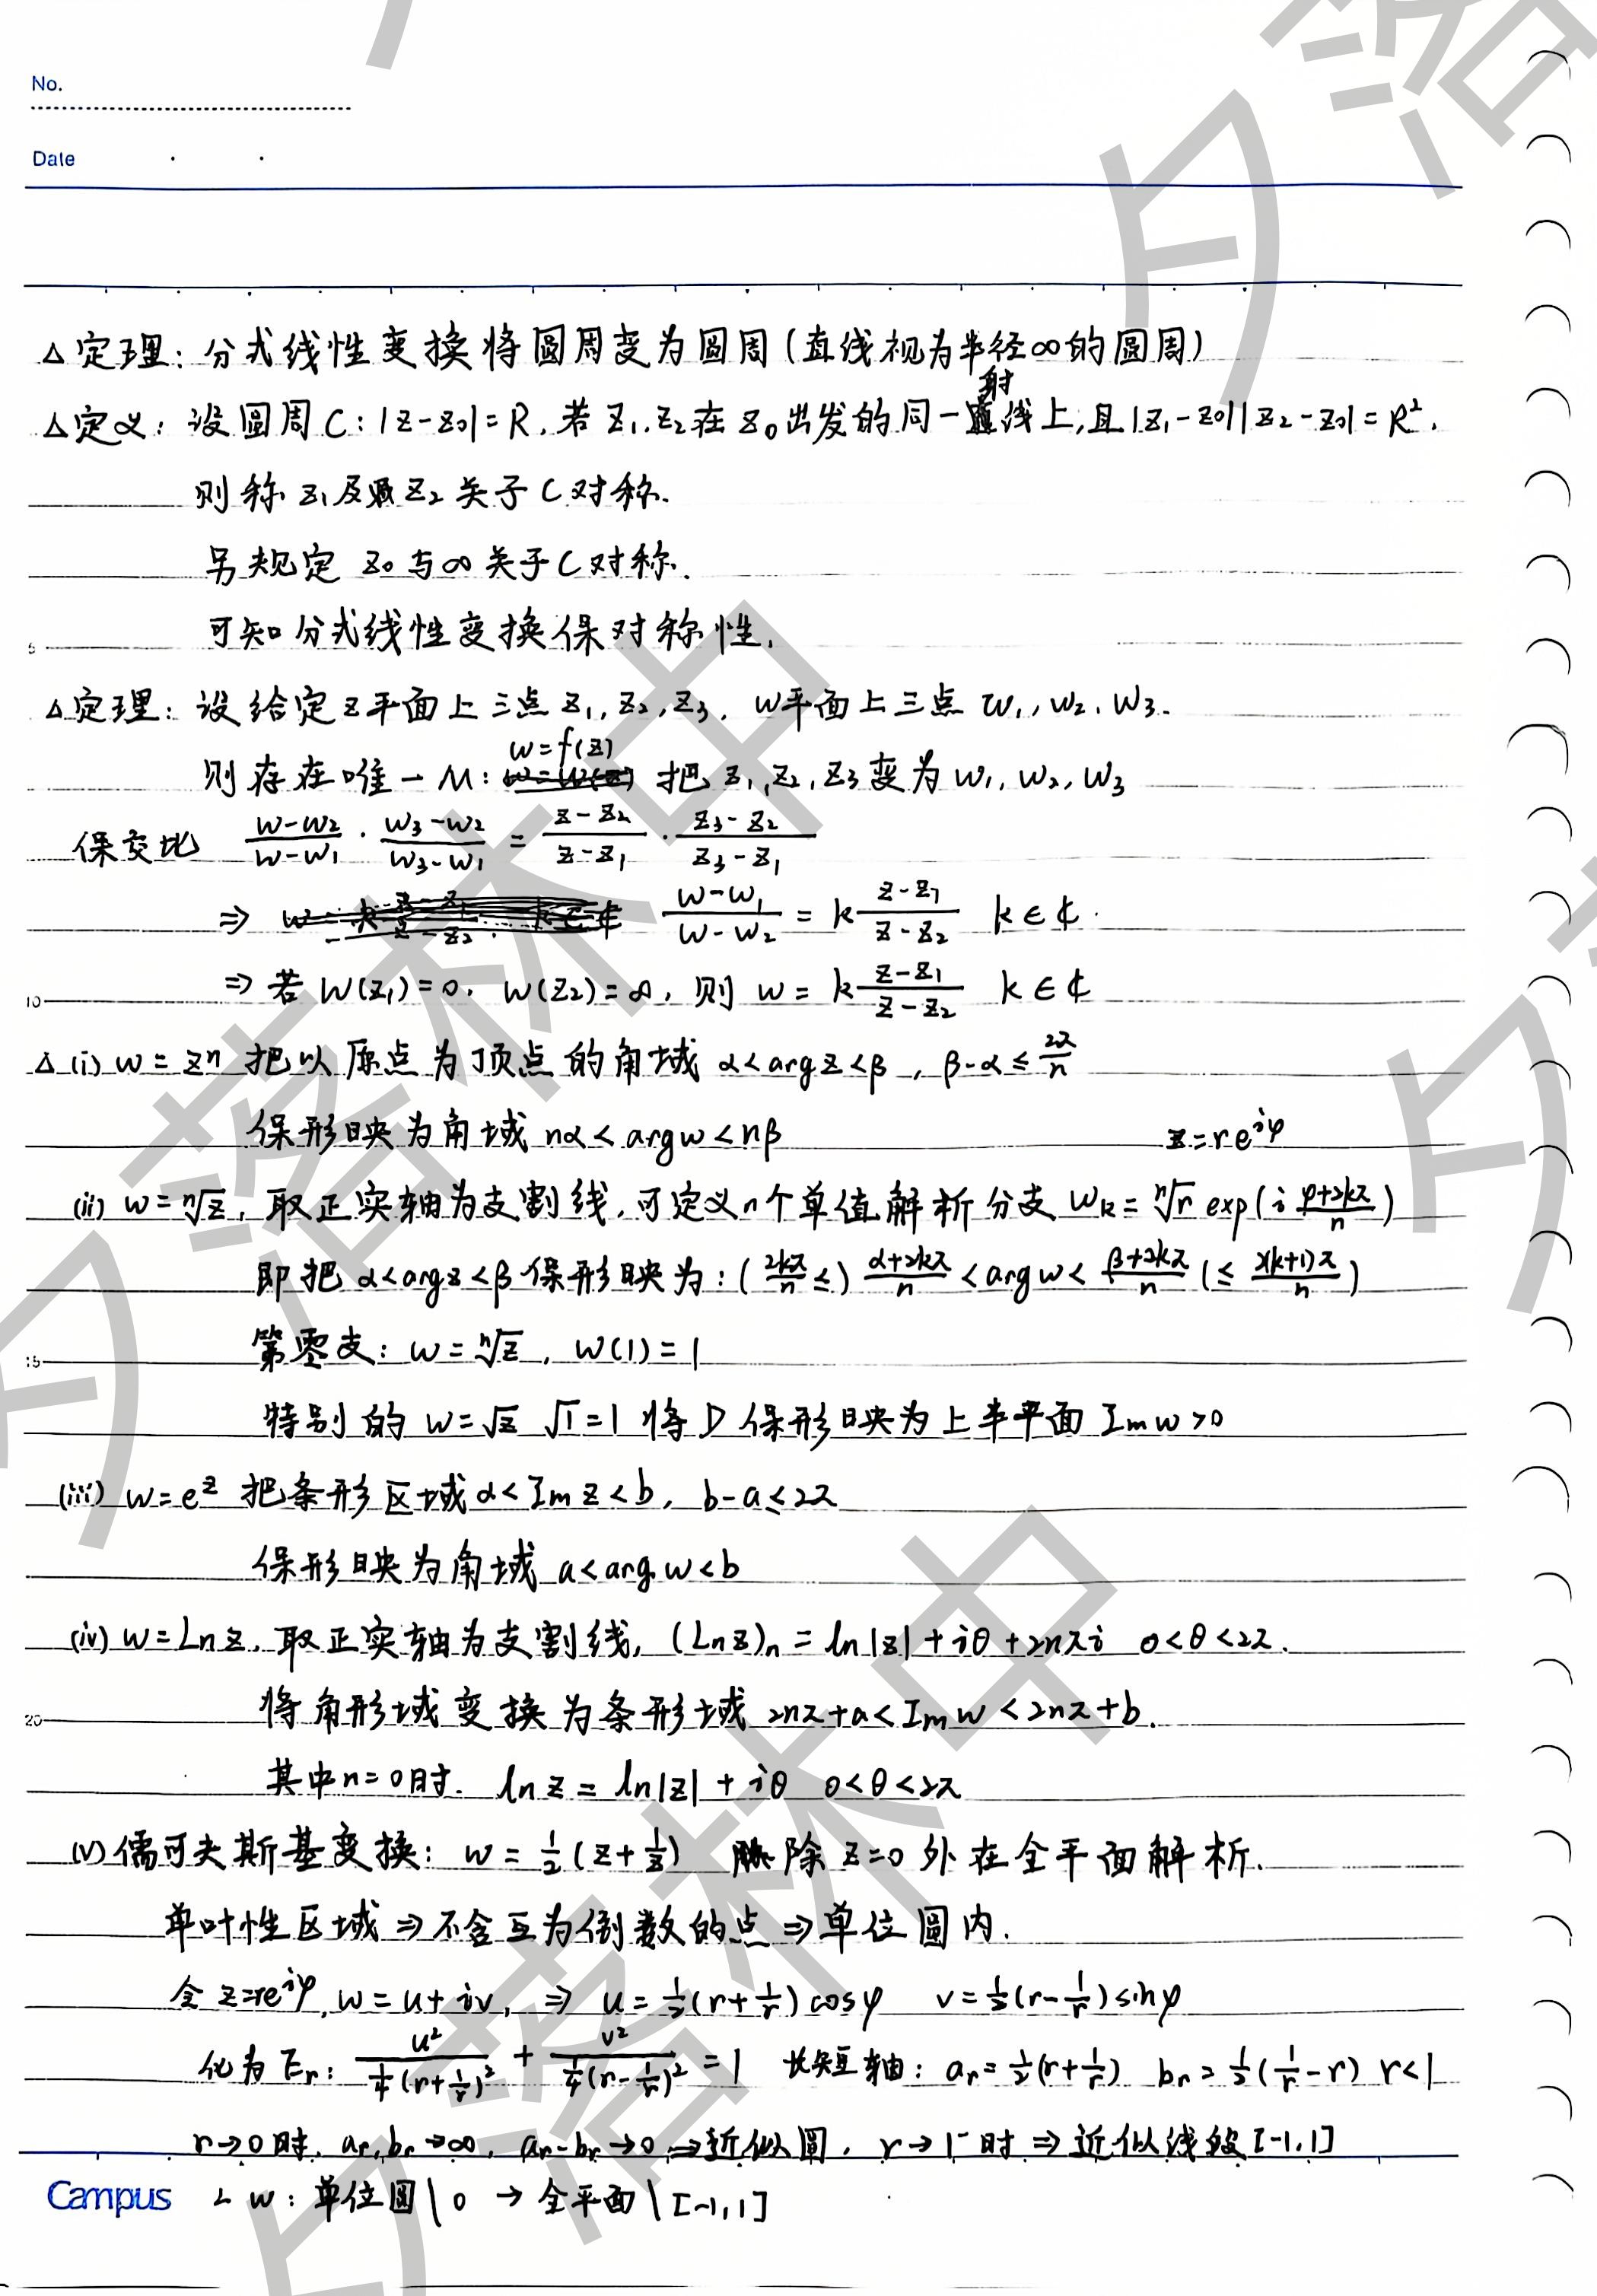 No.
Date
△定理：分式线性变换将圆周变为圆周（直线视为半径∞的圆周）
△定义：设圆周C：|z-z₀|=R，若z₁,z₂在z₀出发的同一射线上，且|z₁-z₀||z₂-z₀|=R²，
则称z₁及z₂关于C对称.
另规定 z₀与∞关于C对称.
可知分式线性变换保对称性.
△定理：设给定z平面上三点z₁,z₂,z₃，w平面上三点w₁,w₂,w₃.
则存在唯一M：w=f(z) 把z₁,z₂,z₃变为w₁,w₂,w₃
保交比 (w-w₂)/(w-w₁)·(w₃-w₂)/(w₃-w₁)=(z-z₂)/(z-z₁)·(z₃-z₂)/(z₃-z₁)
⇒ (w-w₁)/(w-w₂)=k(z-z₁)/(z-z₂) k∈ℂ.
⇒若w(z₁)=0，w(z₂)=∞，则w=k(z-z₁)/(z-z₂) k∈ℂ
△(i) w=zⁿ 把以原点为顶点的角域 α<argz<β，β-α≤2π/n
保形映为角域 nα<argw<nβ z=re^{iφ}
(ii) w=ⁿ√z，取正实轴为支割线，可定义n个单值解析分支 w_k=ⁿ√r exp(i (φ+2kπ)/n)
即把α<argz<β保形映为：(2kπ/n≤) (α+2kπ)/n<argw<(β+2kπ)/n (≤2(k+1)π/n)
第零支：w=ⁿ√z，w(1)=1
特别的 w=√z √1=1 将D保形映为上半平面Imw>0
(iii) w=e^z 把条形区域a<Imz<b，b-a≤2π
保形映为角域 a<argw<b
(iv) w=Lnz，取正实轴为支割线，(Lnz)ₙ=ln|z|+iθ+2nπi 0<θ<2π.
将角形域变换为条形域 2nπ+a<Imw<2nπ+b.
其中n=0时. lnz=ln|z|+iθ 0<θ<2π
(v)儒可夫斯基变换：w=½(z+1/z) 除z=0外在全平面解析.
单叶性区域⇒不含互为倒数的点⇒单位圆内.
令z=re^{iφ}，w=u+iv，⇒ u=½(r+1/r)cosφ v=½(r-1/r)sinφ
化为Eᵣ：u²/(¼(r+1/r)²)+v²/(¼(r-1/r)²)=1 长短轴：aᵣ=½(r+1/r) bᵣ=½(1/r-r) r<1
r→0时，aᵣ,bᵣ→∞，aᵣ-bᵣ→0⇒近似圆，r→1⁻时⇒近似线段[-1,1]
w：单位圆\0→全平面\[-1,1]
Campus
5
10
15
20
夕落林中
夕落林中
夕落
夕